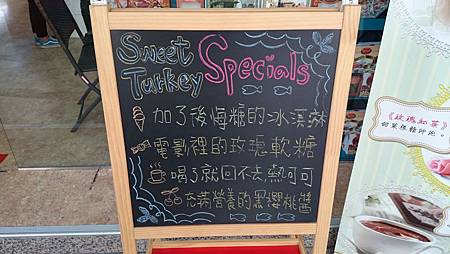 Sweet Turkey Specials
加了後悔糖的冰淇淋
電影裡的玫瑰軟糖
喝了就回不去熱可可
充滿營養的黑櫻桃醬
《玫瑰紅茶》